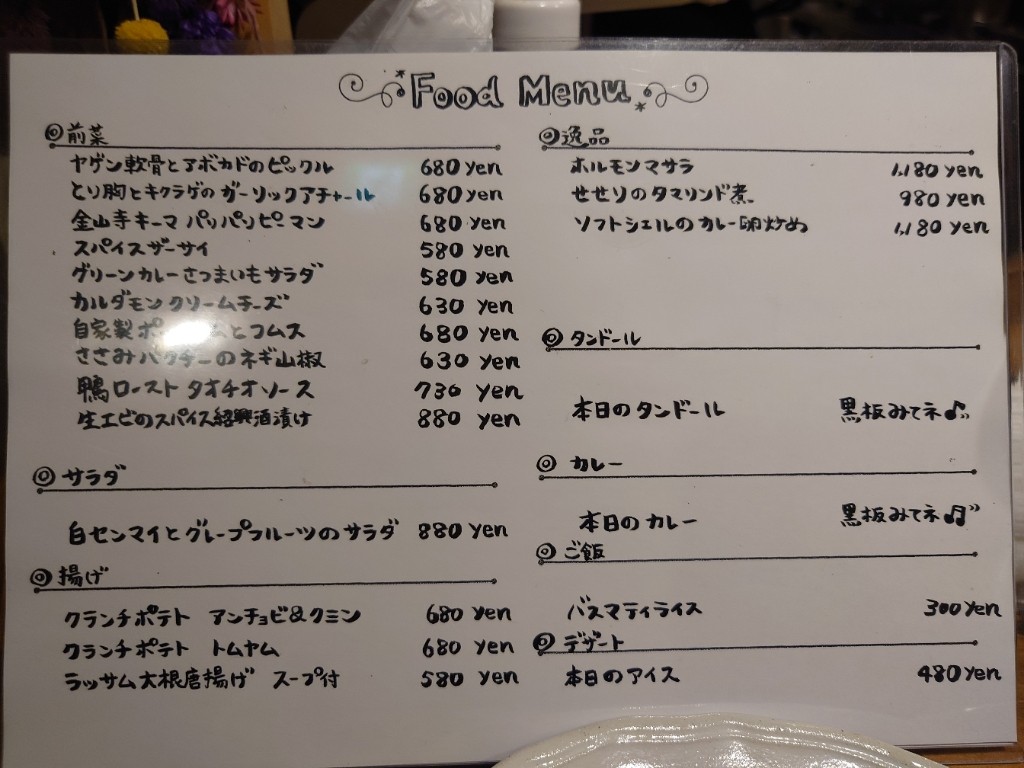 Food Menu
◎前菜
ヤゲン軟骨とアボカドのピックル 680 yen
とり胸とキクラゲのガーリックアチャール 680 yen
金山寺キーマ パリパリピーマン 680 yen
スパイスザーサイ 580 yen
グリーンカレーさつまいもサラダ 580 yen
カルダモンクリームチーズ 630 yen
自家製 とフムス 680 yen
ささみパクチーのネギ山椒 630 yen
鴨ロースト タオチオソース 730 yen
生エビのスパイス紹興酒漬け 880 yen
◎サラダ
白センマイとグレープフルーツのサラダ 880 yen
◎揚げ
クランチポテト アンチョビ&クミン 680 yen
クランチポテト トムヤム 680 yen
ラッサム大根唐揚げ スープ付 580 yen
◎逸品
ホルモンマサラ 1,180 yen
せせりのタマリンド煮 980 yen
ソフトシェルのカレー卵炒め 1,180 yen
◎タンドール
本日のタンドール 黒板みてネ♪
◎カレー
本日のカレー 黒板みてネ♫
◎ご飯
バスマティライス 300 yen
◎デザート
本日のアイス 480 yen